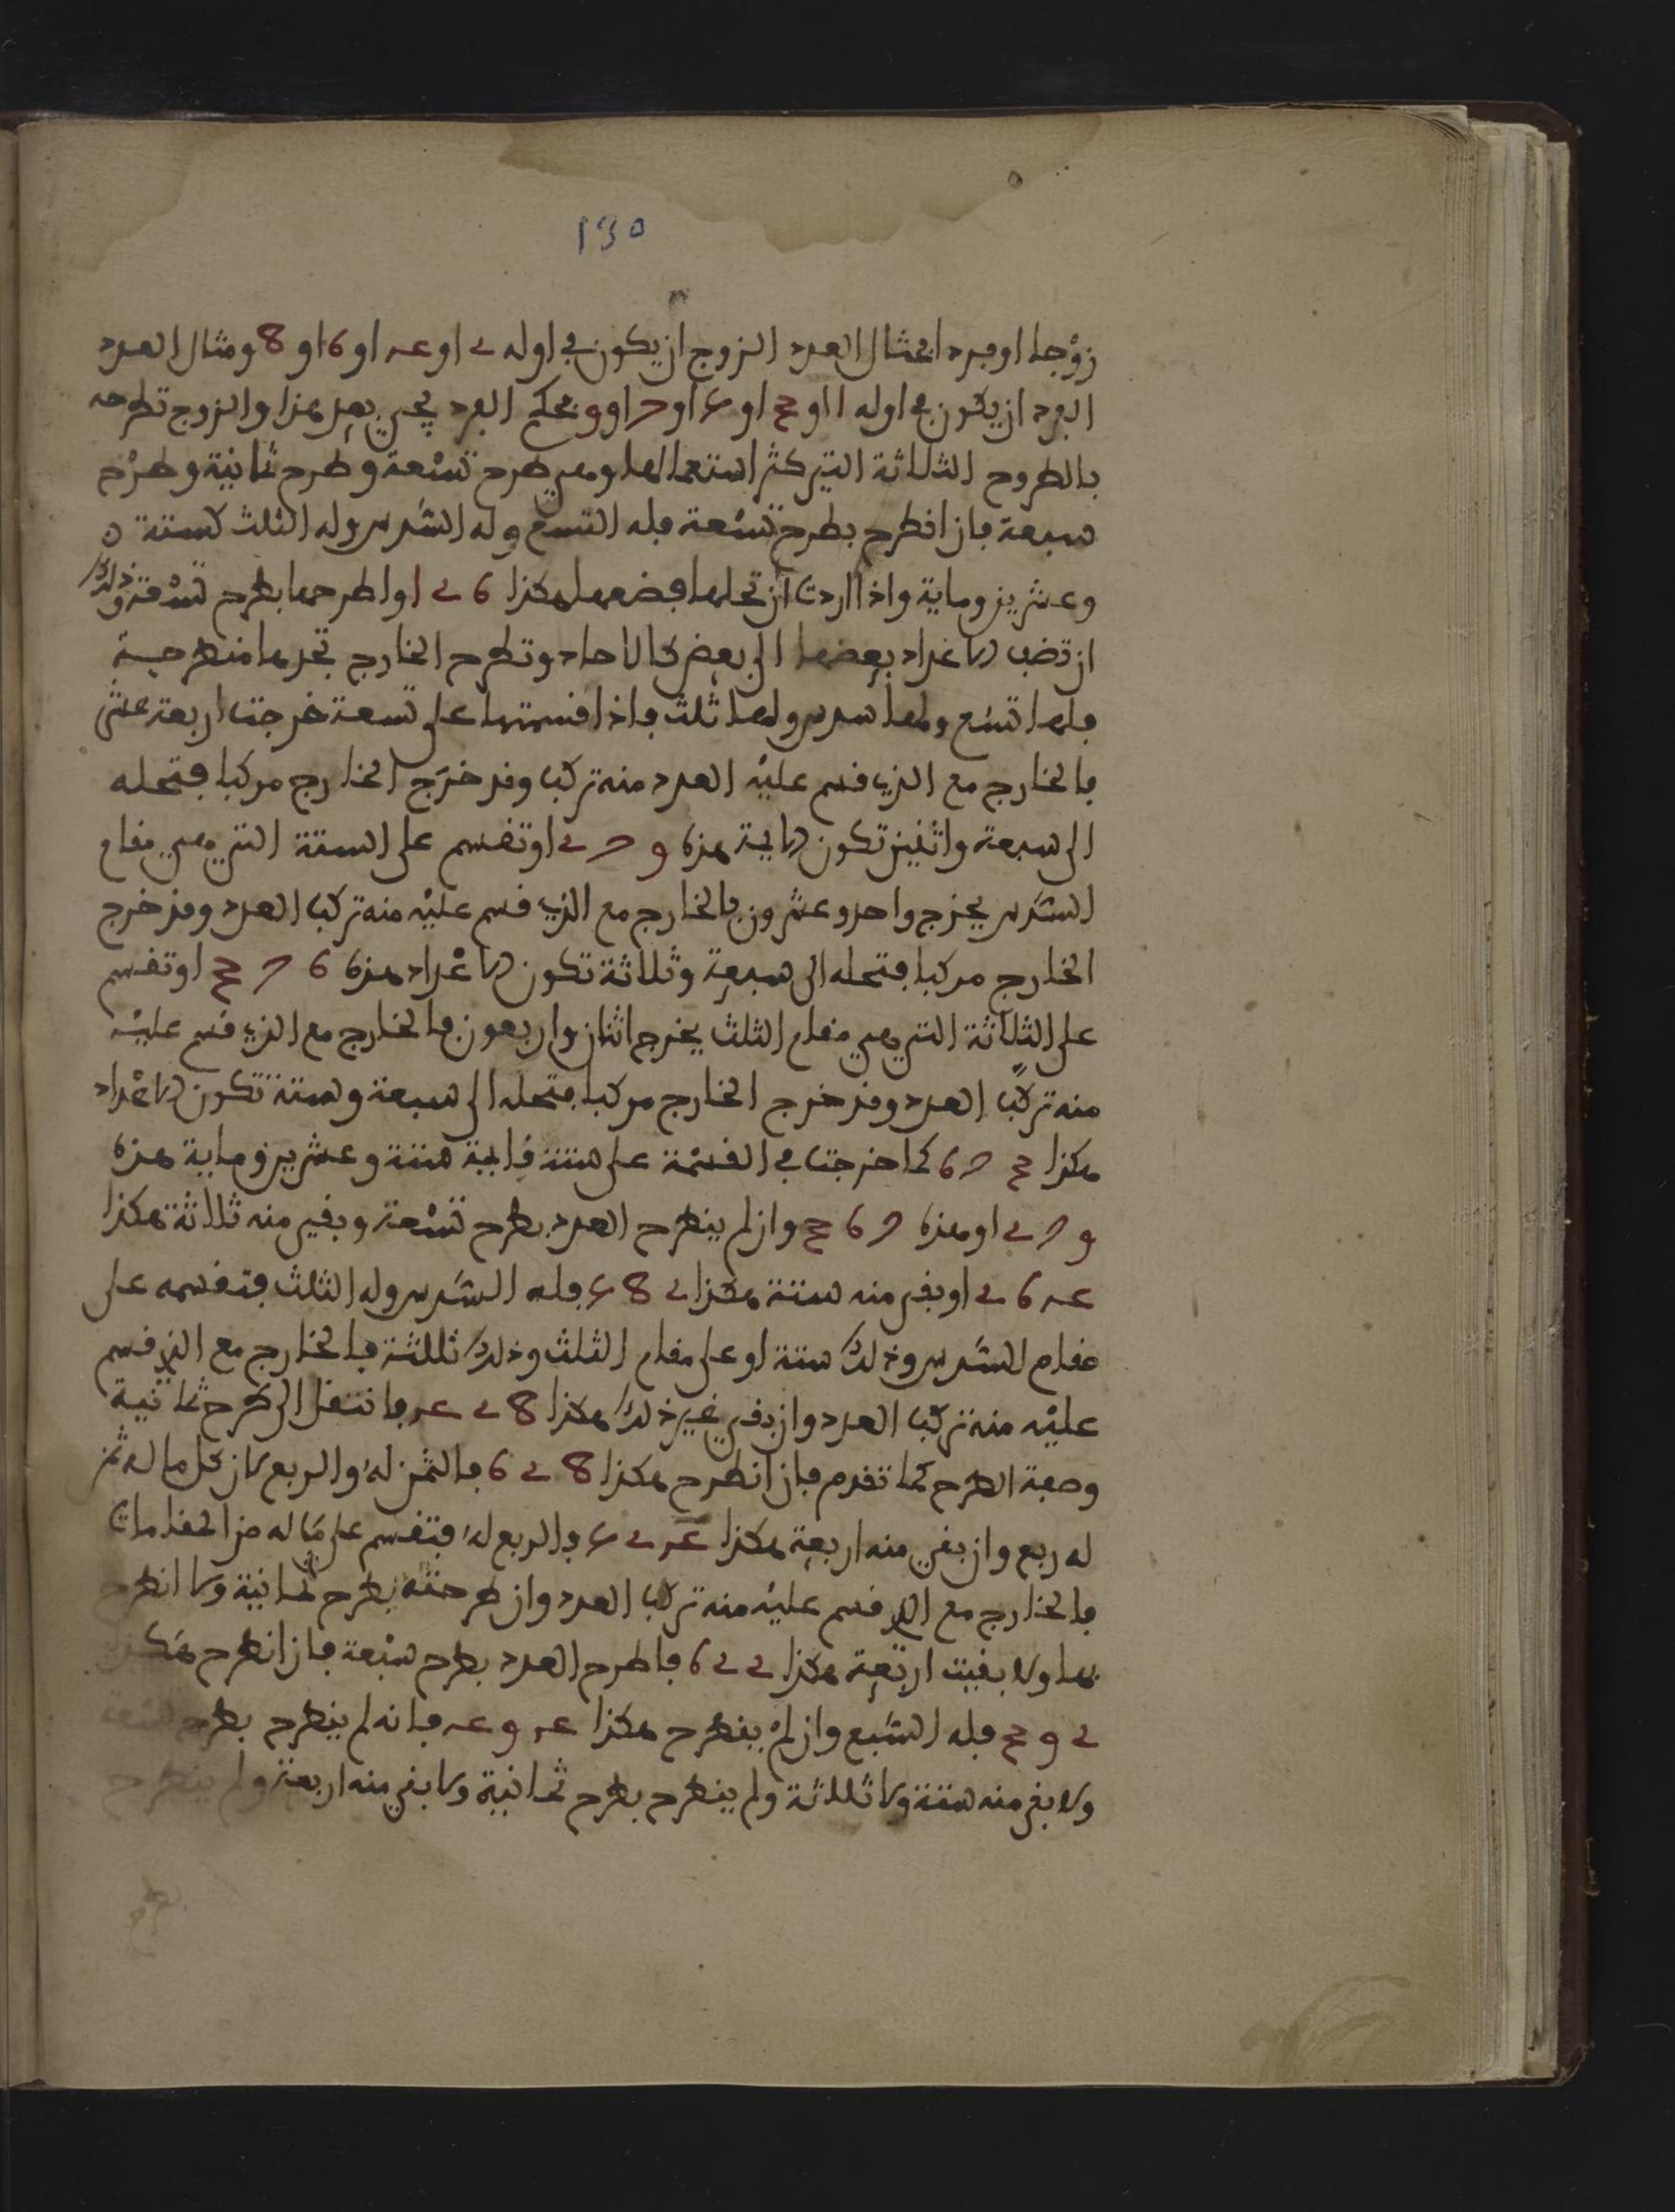 130
زوجا او فردا فمثال العدد الزوج ان يكون في اوله 2 او 4 او 6 او 8 ومثال العدد
الفرد ان يكون في اوله 1 او 3 او 5 او 7 او 9 فحكم الفرد يجيء بعد هذا والزوج تطرحه
بالطروح الثلاثة التي كثر استعمالها وهي طرح تسعة وطرح ثمانية وطرح
سبعة فان انطرح بطرح تسعة فله التسع وله السدس وله الثلث كستة
وعشرين وماية واذا اردت ان تحلها فضعها هكذا 6 2 1 واطرحها بطرح تسعة وذلك
ان تضف الاعداد بعضها الى بعض كالاحاد وتطرح الخارج تجدها منطرحة
فلها تسع ولها سدس ولها ثلث فاذا قسمتها على تسعة خرجت اربعة عشر
فالخارج مع الذي قسم عليه العدد منه تركب وقد خرج الخارج مركبا فتحله
الى سبعة واثنين تكون الايمة هذه 9 7 2 او تقسم على الستة التي هي مقام
السدس يخرج واحد وعشرون فالخارج مع الذي قسم عليه منه تركب العدد وقد خرج
الخارج مركبا فتحله الى سبعة وثلاثة تكون الاعداد هذه 6 7 3 او تقسم
على الثلاثة التي هي مقام الثلث يخرج اثنان واربعون فالخارج مع الذي قسم عليه
منه تركب العدد وقد خرج الخارج مركبا فتحله الى سبعة وستة تكون الاعداد
هكذا 3 7 6 كما خرجت في القسمة على ستة فايمة ستة وعشرين وماية هذه
9 7 2 او هذه 7 6 3 وان لم ينطرح العدد بطرح تسعة وبقي منه ثلاثة هكذا
4 6 2 او بقي منه ستة هكذا 2 8 5 فله السدس وله الثلث فتقسمه على
مقام السدس وذلك ستة او على مقام الثلث وذلك ثلاثة فالخارج مع الذي قسم
عليه منه تركب العدد وان بقي غير ذلك هكذا 8 2 4 فانتقل الى طرح ثمانية
وصفة الطرح كما تقدم فان انطرح هكذا 8 2 6 فالثمن له والربع لان كل ما له ثمن
له ربع وان بقي منه اربعة هكذا 4 2 5 فالربع له فتقسم على ما له من المقامات
فالخارج مع الذي قسم عليه منه تركب العدد وان طرحته بطرح ثمانية ولا انطرح
بها ولا بقيت اربعة هكذا 2 2 6 فاطرح العدد بطرح سبعة فان انطرح هكذا
2 9 3 فله السبع وان لم ينطرح هكذا 4 9 4 فانه لم ينطرح بطرح تسعة
ولا بقي منه ستة ولا ثلاثة ولم ينطرح بطرح ثمانية ولا بقي منه اربعة ولم ينطرح